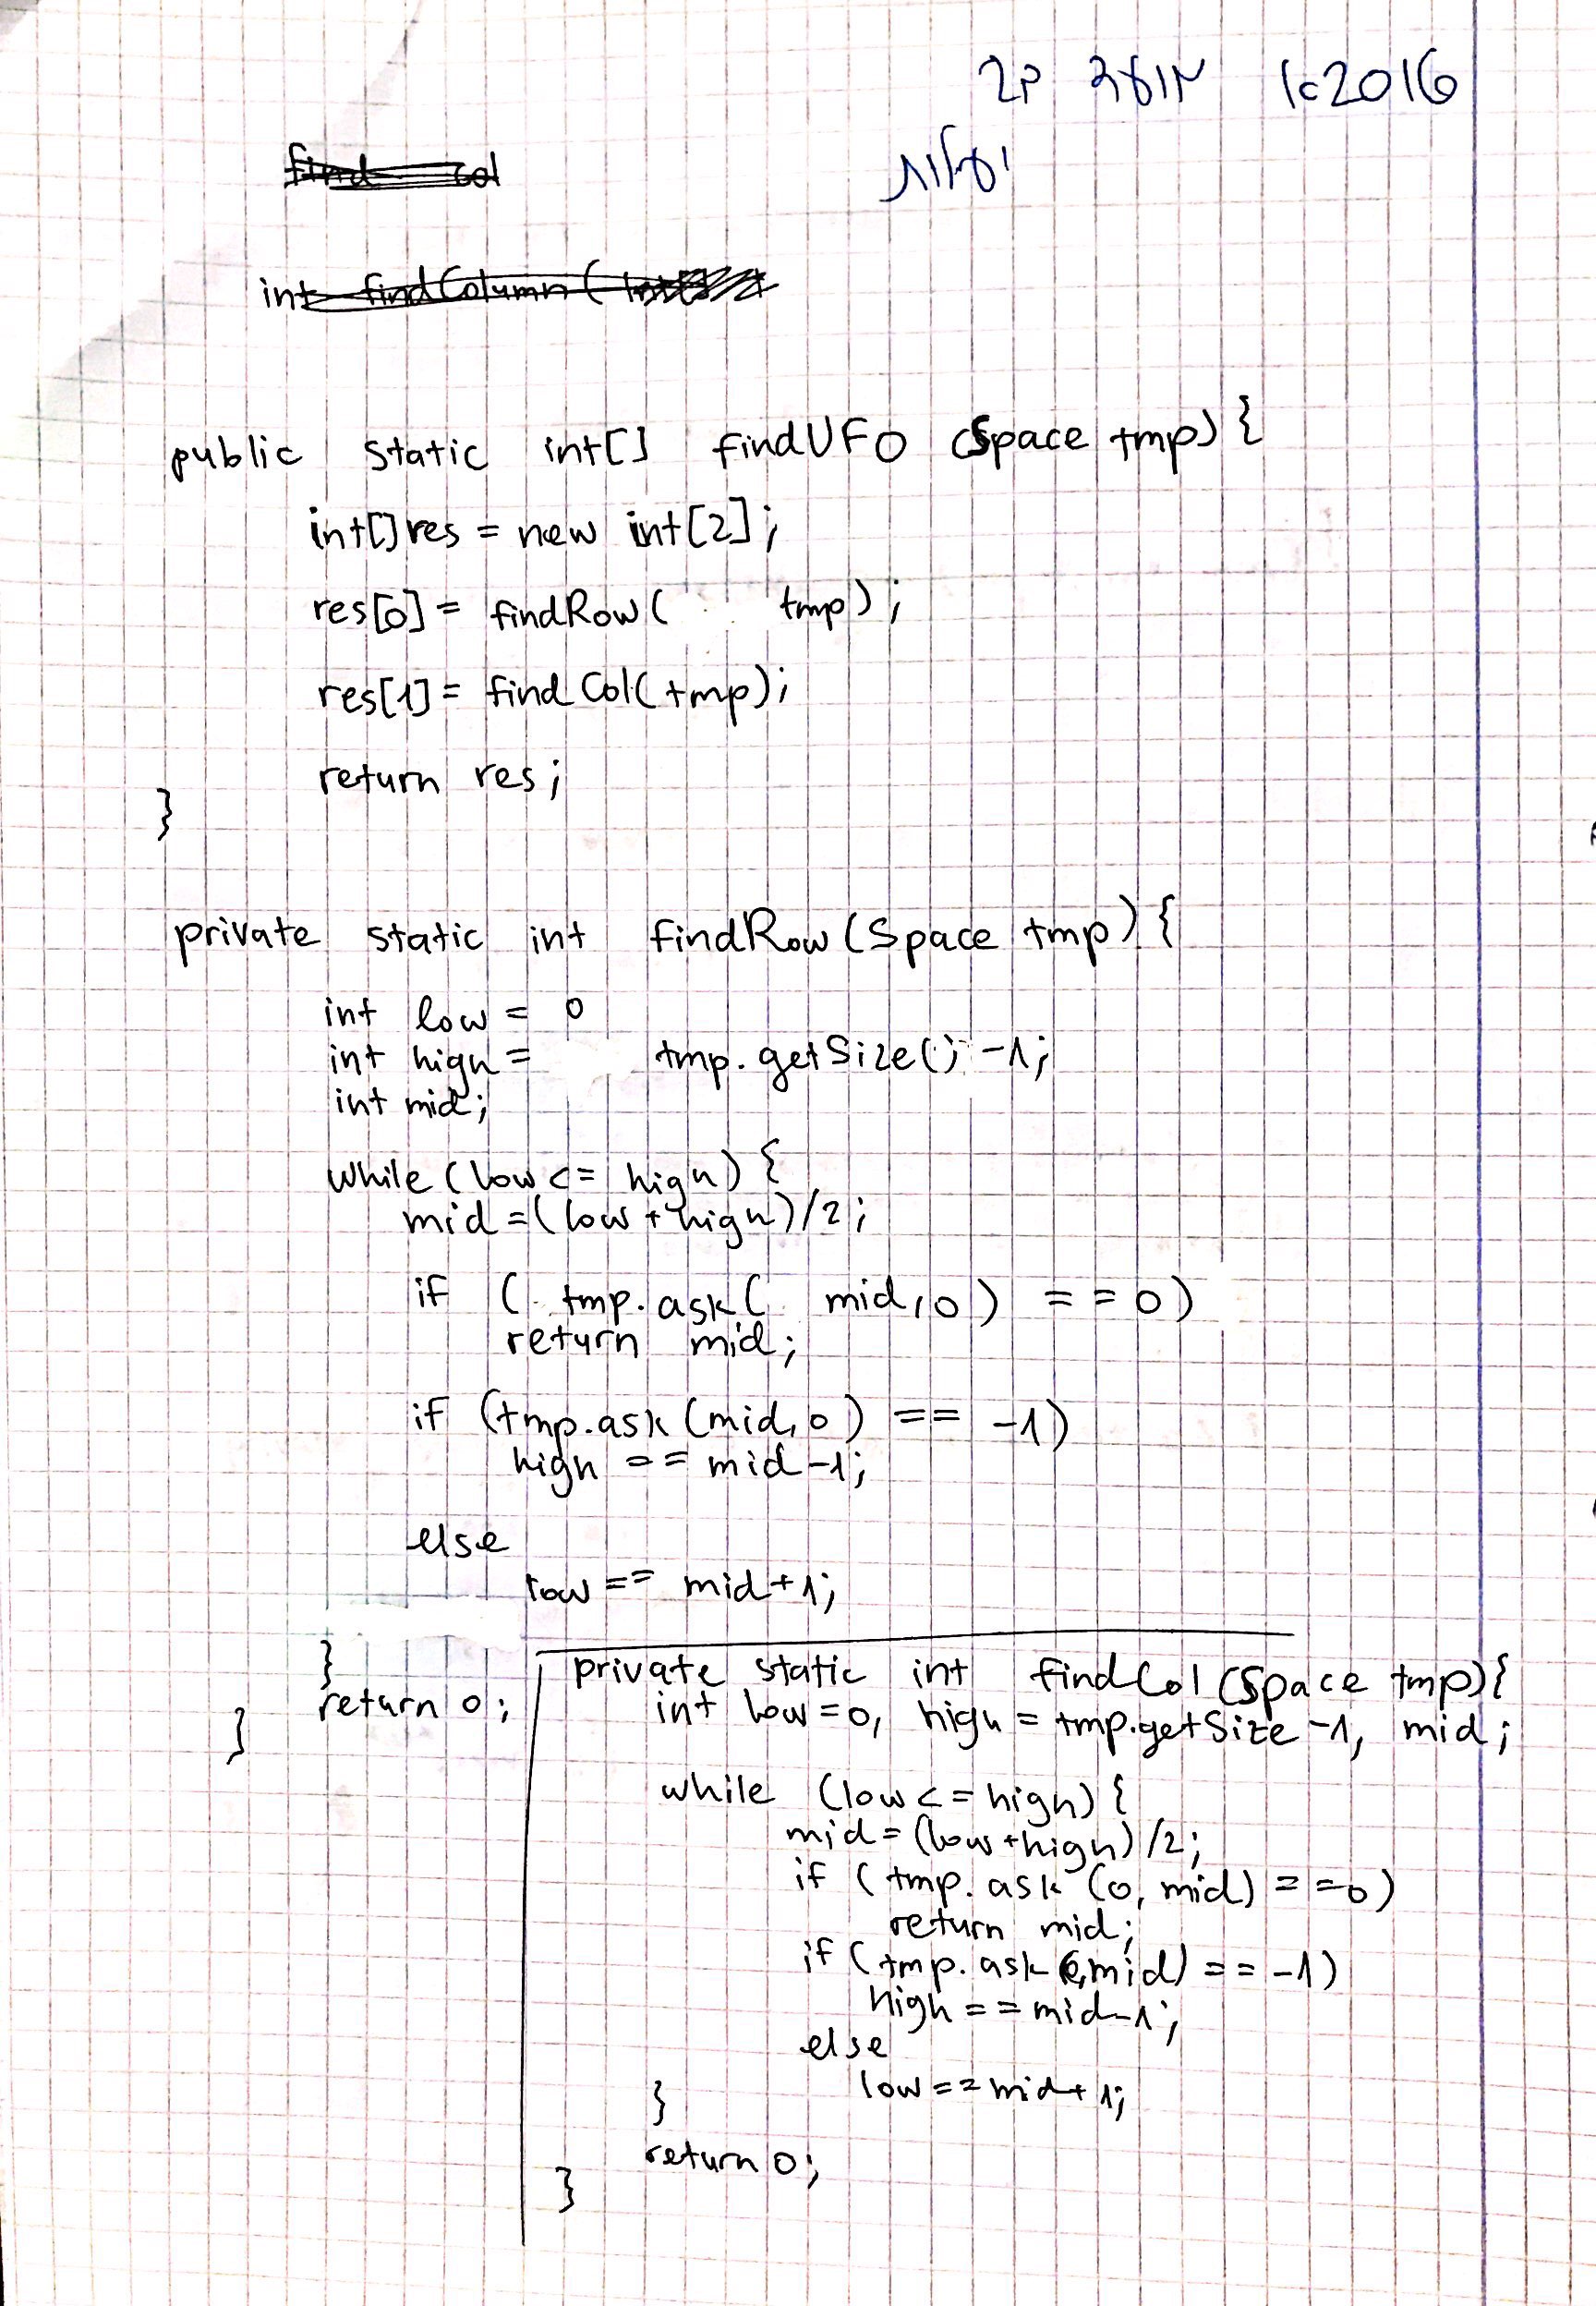 2016א מועד
find col
int findColumn(
public static int[] findUFO (Space tmp) {
int[] res = new int[2];
res[0] = findRow( tmp);
res[1] = findCol(tmp);
return res;
}
private static int findRow (Space tmp) {
int low = 0
int high = tmp.getSize() -1;
int mid;
while (low <= high) {
mid = (low + high)/2;
if ( tmp.ask( mid,0) == 0)
return mid;
if (tmp.ask (mid,0) == -1)
high == mid-1;
else
low == mid+1;
}
return 0;
}
private static int findCol (Space tmp){
int low=0, high = tmp.getSize -1, mid;
while (low <= high) {
mid = (low+high)/2;
if (tmp.ask (0, mid) == 0)
return mid;
if (tmp.ask (0,mid) == -1)
high == mid-1;
else
low == mid+1;
}
return 0;
}